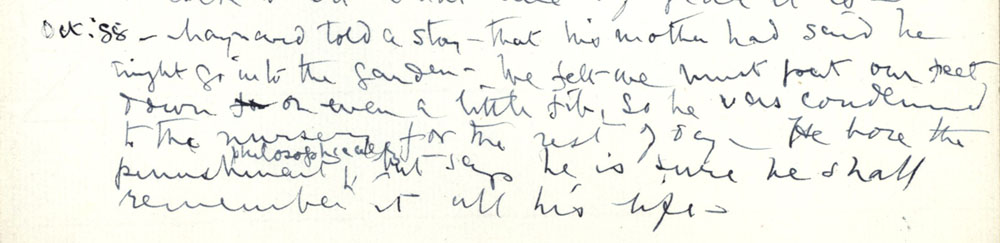 Oct: 88 — Maynard told a story — that his mother had said he
might go into the garden — We felt we must put our feet
down on even a little fib, so he was condemned
to the nursery for the rest of day — He bore the
punishment philosophically but says he is sure he shall
remember it all his life —